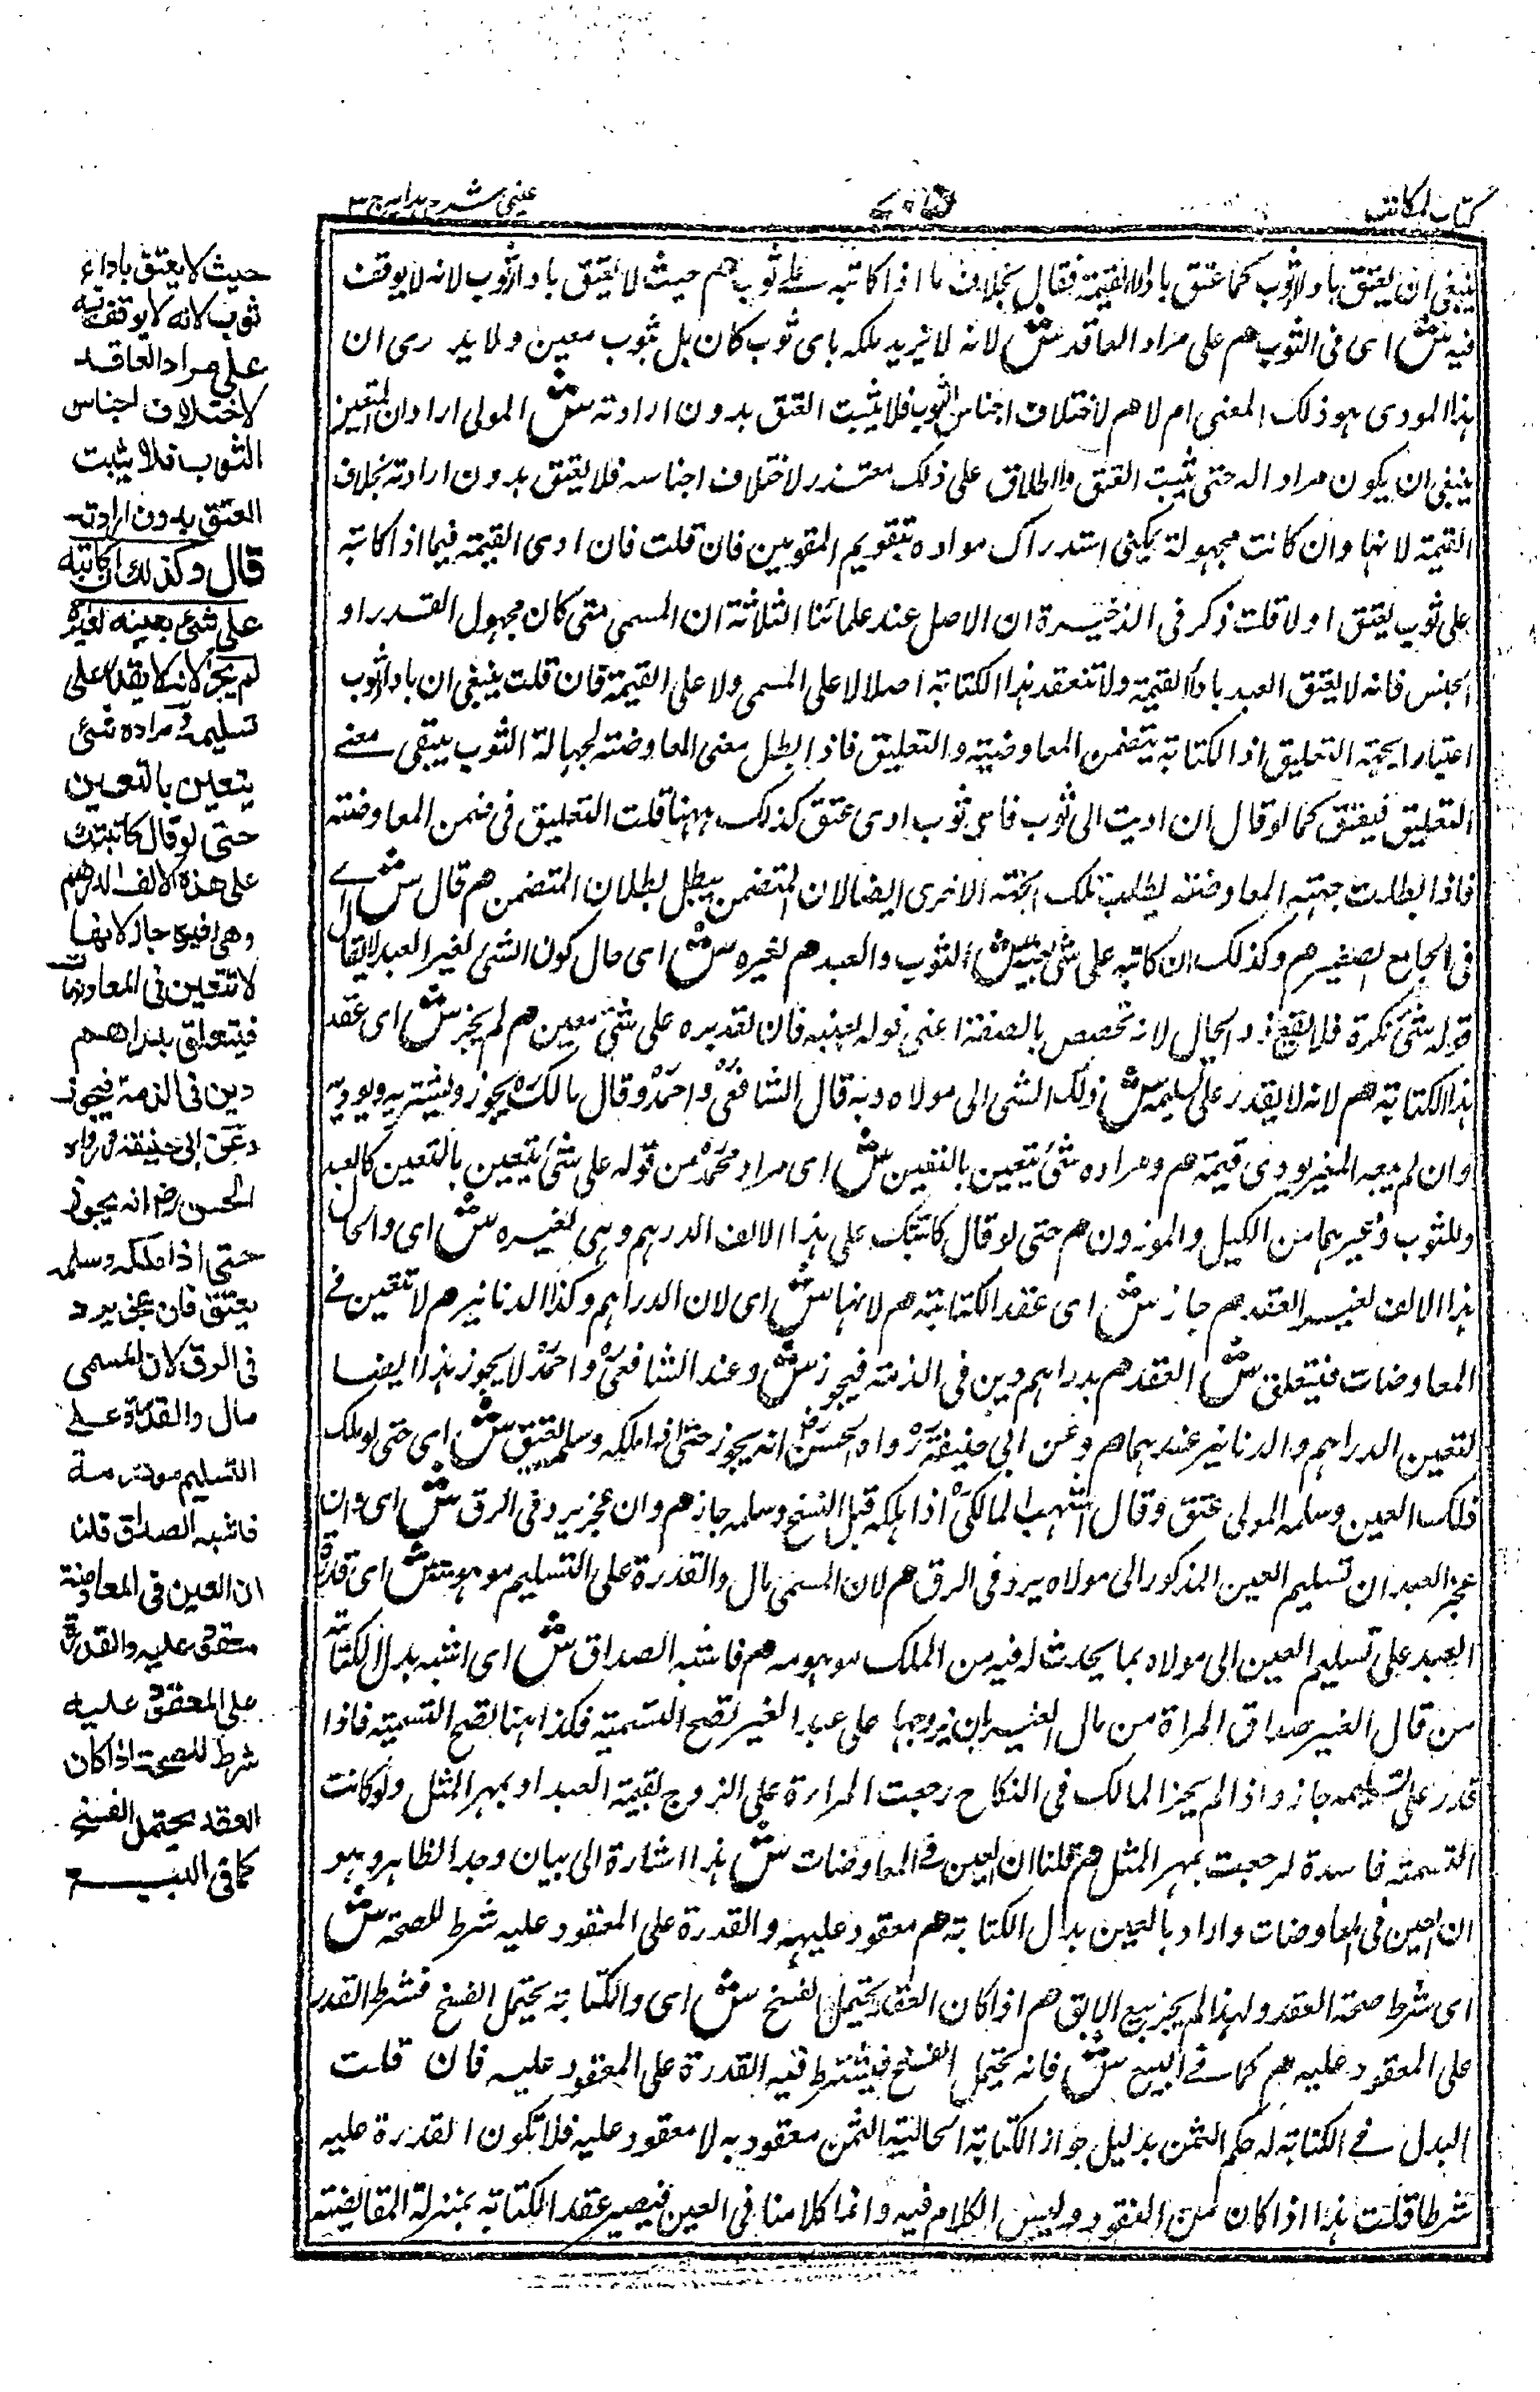 كتاب المكاتب
عینی شرح ہدایہ ج ۳
ینبغی ان یعتق باداء الثوب کما عتق باداء القیمة فقال بخلاف ما اذا کاتبه علے ثوب هم حیث لا یعتق باداء الثوب لانه لا یوقف
فیه ش ای فی الثوب هم علی مراد العاقد ش لانه لا یرید ملکه بای ثوب کان بل بثوب معین ولا یدری ان
هذا المودی هو ذلک المعنی ام لا هم لاختلاف اجناس الثوب فلا یثبت العتق بدون ارادته ش المولی اراد ان المتعین
ینبغی ان یکون مرادا له حتی یثبت العتق والاطلاق علی ذلک متعذر لاختلاف اجناسه فلا یعتق بدون ارادته بخلاف
القیمة لانها وان کانت مجهولة یمکن استدراک مراده بتقویم المقومین فان قلت فان ادی القیمة فیما اذا کاتبه
علی ثوب یعتق اولا قلت ذکر فی الذخیرة ان الاصل عند علمائنا الثلاثة ان المسمی متی کان مجهول القدر او
الجنس فانه لا یعتق العبد باداء القیمة ولا تنعقد هذا الکتابة اصلا لا علی المسمی ولا علی القیمة فان قلت ینبغی ان باداء الثوب
اعتبارا بجهة التعلیق اذ الکتابة یتضمن المعاوضة والتعلیق فاذا بطل معنی المعاوضة لجهالة الثوب یبقی معنے
التعلیق فیعتق کما لو قال ان ادیت الی ثوب فای ثوب ادی عتق کذلک ههنا قلت التعلیق فی ضمن المعاوضة
فاذا بطلت جهة المعاوضة بطلت تلک الجهة الاخری ایضا لان المتضمن یبطل لبطلان المتضمن هم قال ش اے
فی الجامع الصغیر هم وکذلک ان کاتبه علی شئ بعینه ش الثوب والعبد هم لغیره ش ای حال کون الشئ لغیر العبد لا یقال
قوله شئ نکرة فلا یقع ذو الحال لانه تخصص بالصفة اعنی قوله بعینه فان تقدیره علی شئ معین هم لم یجز ش ای عقد
هذا الکتابة هم لانه لا یقدر علی تسلیمه ش ذلک الشئ الی مولاه وبه قال الشافعیؒ واحمدؒ وقال مالکؒ یجوز ویشتریه ویودیه
وان لم یبعه الغیر یودی قیمته هم ومراده شئ یتعین بالتعین ش ای مراد محمدؒ من قوله علی شئ یتعین بالتعین کالعبد
وللثوب وغیرهما من الکیل والموزون هم حتی لو قال کاتبتک علی هذا الالف الدرهم وهی لغیره ش ای والحال
هذا الالف لغیر العقد هم جاز ش ای عقد الکتابة هم لانها ش ای لان الدراهم وکذا الدنانیر هم لا تتعین فی
المعاوضات فیتعلق ش العقد هم بدراهم دین فی الذمة فیجوز ش وعند الشافعیؒ واحمدؒ لا یجوز هذا ایضا
لتعین الدراهم والدنانیر عندهما هم وعن ابی حنیفةؒ رواه الحسنؒ انه یجوز حتی اذا ملکه وسلمه یعتق ش ای حتی لو ملک
ذلک العین وسلمه المولی عتق وقال اشهب المالکیؒ اذا ملکه قبل الفسخ وسلمه جاز هم وان عجز یرد فی الرق ش ای وان
عجز العبد ان تسلیم العین المذکور الی مولاه یرد فی الرق هم لان المسمی مال والقدرة علی التسلیم موهومة ش ای قدرة
العبد علی تسلیم العین الی مولاه بما یحدث له فیه من الملک موهومه هم فاشبه الصداق ش ای اشبه بدل الکتابة
من قال الغیر صداق المراة من مال الغیر بان یزوجها علی عبد الغیر تصح التسمیة فکذا هنا تصح التسمیة فاذا
قدر علی التسلیم جاز واذا لم یجز المالک فی النکاح رجعت المراة علی الزوج بقیمة العبد او بمهر المثل ولو کانت
التسمیة فاسدة لرجعت بمهر المثل هم قلنا ان العین فے المعاوضات ش هذا اشارة الی بیان وجه الظاهر وهو
ان العین فی المعاوضات واراد بالعین بدل الکتابة هم معقود علیه والقدرة علی المعقود علیه شرط للصحة ش
ای شرط صحة العقد ولهذا لم یجز بیع الابق هم اذا کان العقد یحتمل الفسخ ش ای والکتابة یحتمل الفسخ فشرط القدرة
علی المعقود علیه هم کما فے البیع ش فانه یحتمل الفسخ فیشترط فیه القدرة علی المعقود علیه فان قلت
البدل فے الکتابة له حکم الثمن بدلیل جواز الکتابة الحالیة الثمن معقود به لا معقود علیه فلا تکون القدرة علیه
شرطا قلت هذا اذا کان من النقود ولیس الکلام فیه وانما کلامنا فی العین فیصیر عقد الکتابة بمنزلة المقایضة
حیث لا یعتق باداء
ثوب لانه لا یوقف فیه
علی مراد العاقد
لاختلاف اجناس
الثوب فلا یثبت
العتق بدون ارادته
قال وکذلک ان کاتبه
علی شئ بعینه لغیره
لم یجز لانه لا یقدر علی
تسلیمه ومراده شئ
یتعین بالتعیین
حتی لو قال کاتبتک
علی هذه الالف الدرهم
وهی لغیره جاز لانها
لا تتعین فی المعاوضات
فیتعلق بدراهم
دین فی الذمة فیجوز
وعن ابی حنیفةؒ رواه
الحسنؒ انه یجوز
حتی اذا ملکه وسلمه
یعتق فان عجز یرد
فی الرق لان المسمی
مال والقدرة علے
التسلیم موهومة
فاشبه الصداق قلنا
ان العین فی المعاوضة
معقود علیه والقدرة
علی المعقود علیه
شرط للصحة اذا کان
العقد یحتمل الفسخ
کما فی البیع